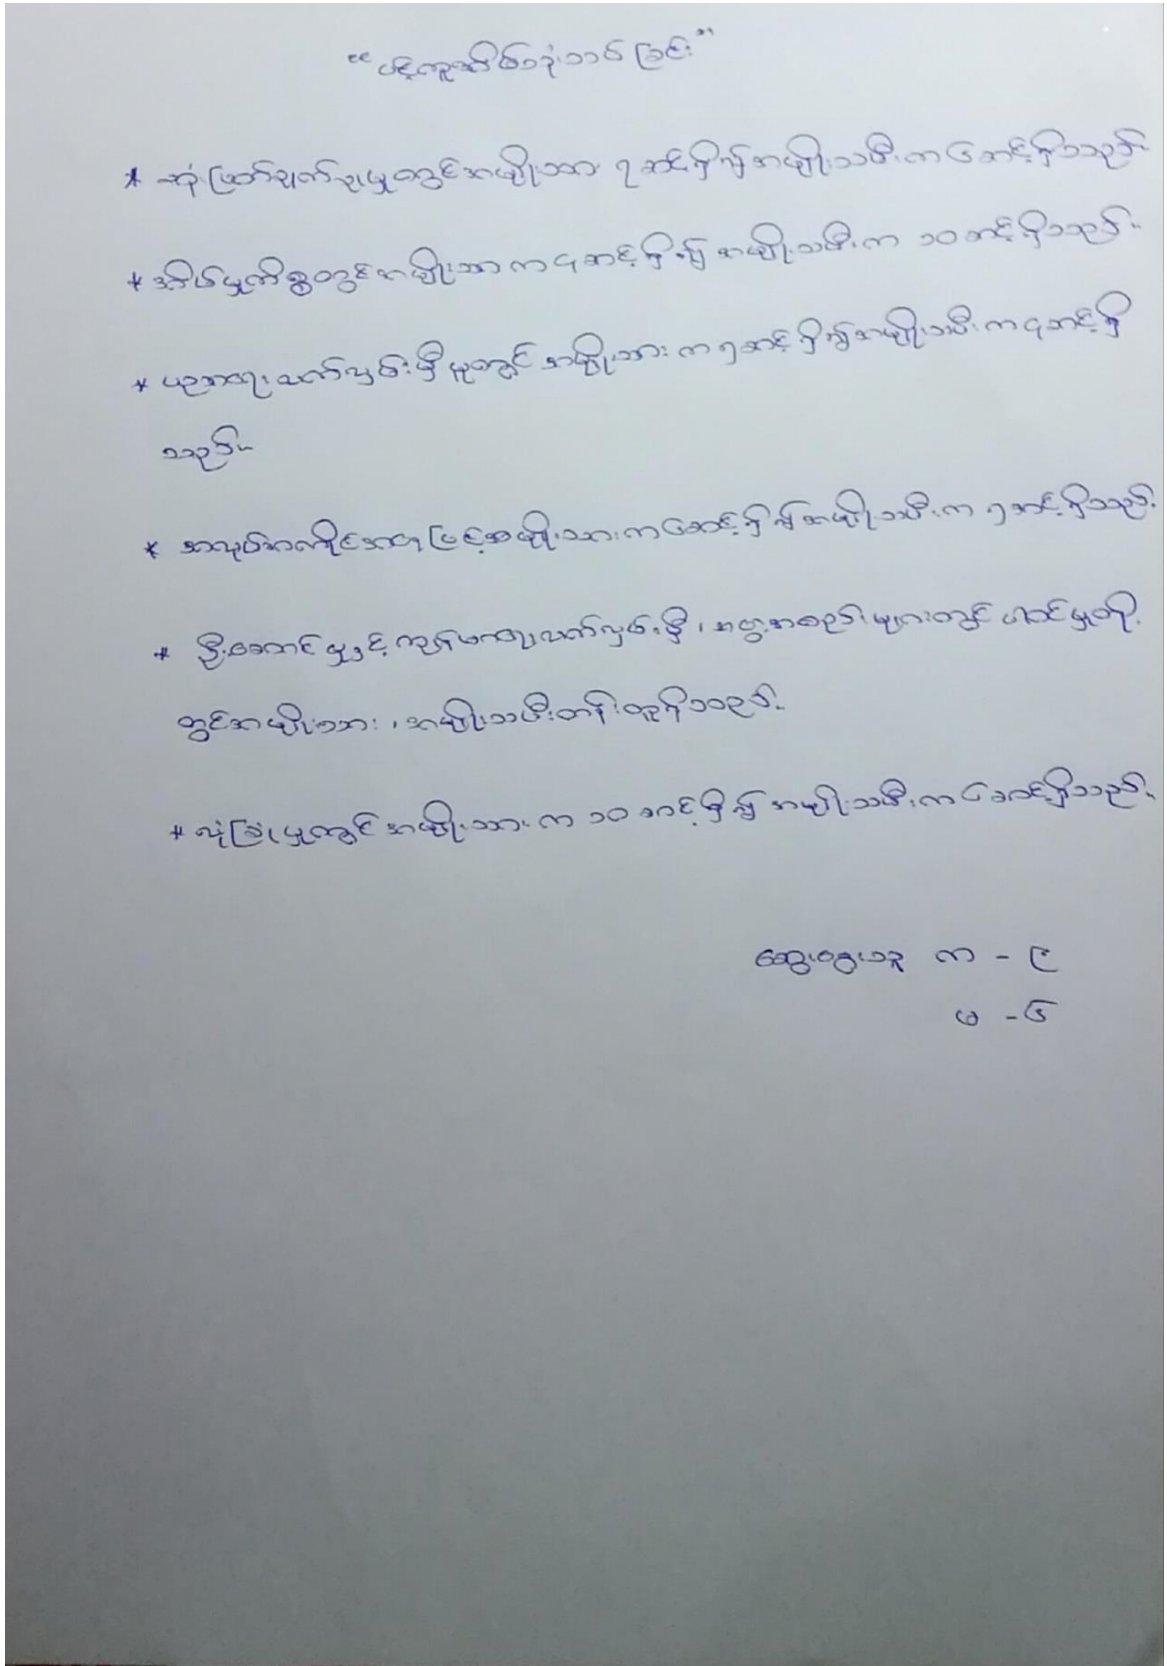 “ပင့်ကူအိမ်သုံးသပ်ခြင်း”
* ဆုံးဖြတ်ချက်ချမှုတွင်အမျိုးသား ၇ ဆင့်ရှိ၍အမျိုးသမီးက ၆ ဆင့်ရှိသည်။
* အိမ်မှုကိစ္စတွင်အမျိုးသားက ၄ ဆင့်ရှိ၍ အမျိုးသမီးက ၁၀ ဆင့်ရှိသည်။
* ပညာရေးလက်လှမ်းမှီမှုတွင် အမျိုးသားက ၅ ဆင့်ရှိ၍အမျိုးသမီးက ၄ ဆင့်ရှိ
သည်။
* အလုပ်အကိုင်အရဖြင့်အမျိုးသားက ၆ ဆင့်ရှိ၍အမျိုးသမီးက ၅ ဆင့်ရှိသည်။
* ဦးဆောင်မှုနှင့်ကျန်းမာရေးလက်လှမ်းမှီ၊ အသွားအစည်းများတွင်ပါဝင်မှုတို့
တွင်အမျိုးသား၊အမျိုးသမီးတန်းတူရှိသည်။
* လုံခြုံမှုတွင်အမျိုးသားက ၁၀ ဆင့်ရှိ၍ အမျိုးသမီးက ၆ ဆင့်ရှိသည်။
ဆွေးနွေးသူ ကျ - ၉
မ - ၆